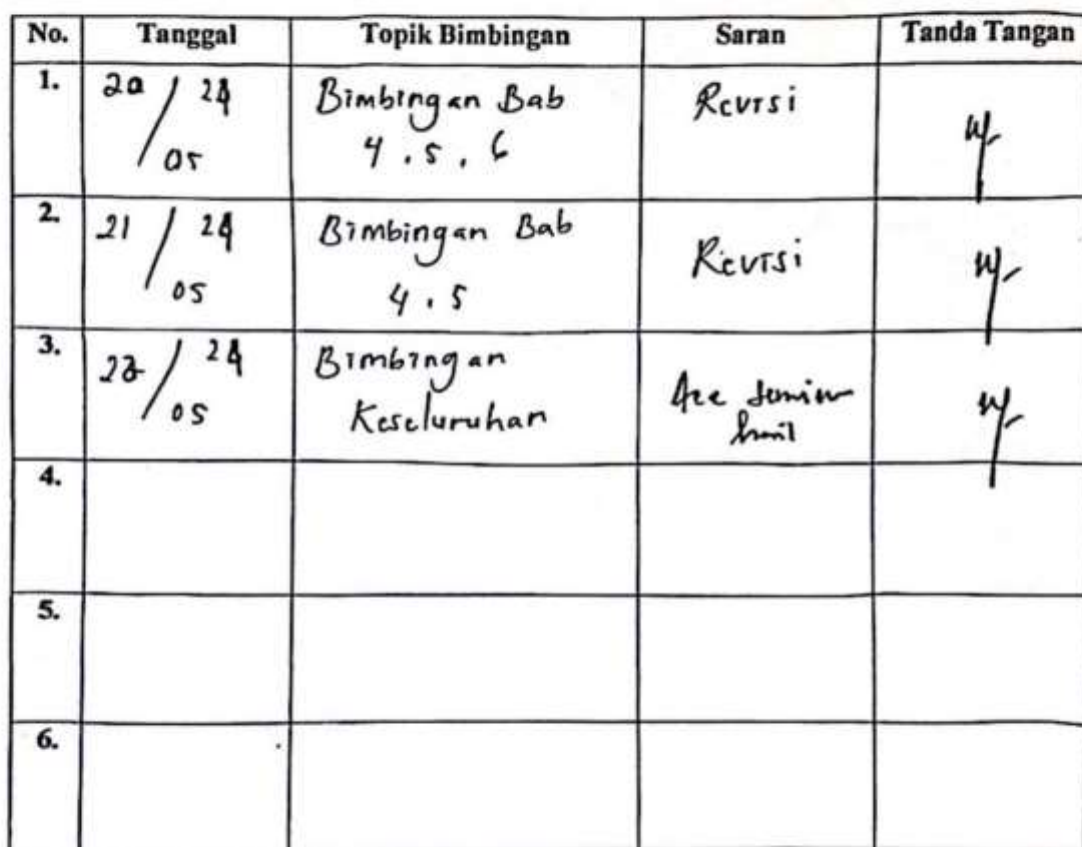 No. Tanggal Topik Bimbingan Saran Tanda Tangan
1. 20/05 24 Bimbingan Bab Revisi
4. 5. 6
2. 21/05 24 Bimbingan Bab Revisi
4. 5
3. /05 24 Bimbingan Acc
Keseluruhan hasil
4.
5.
6.